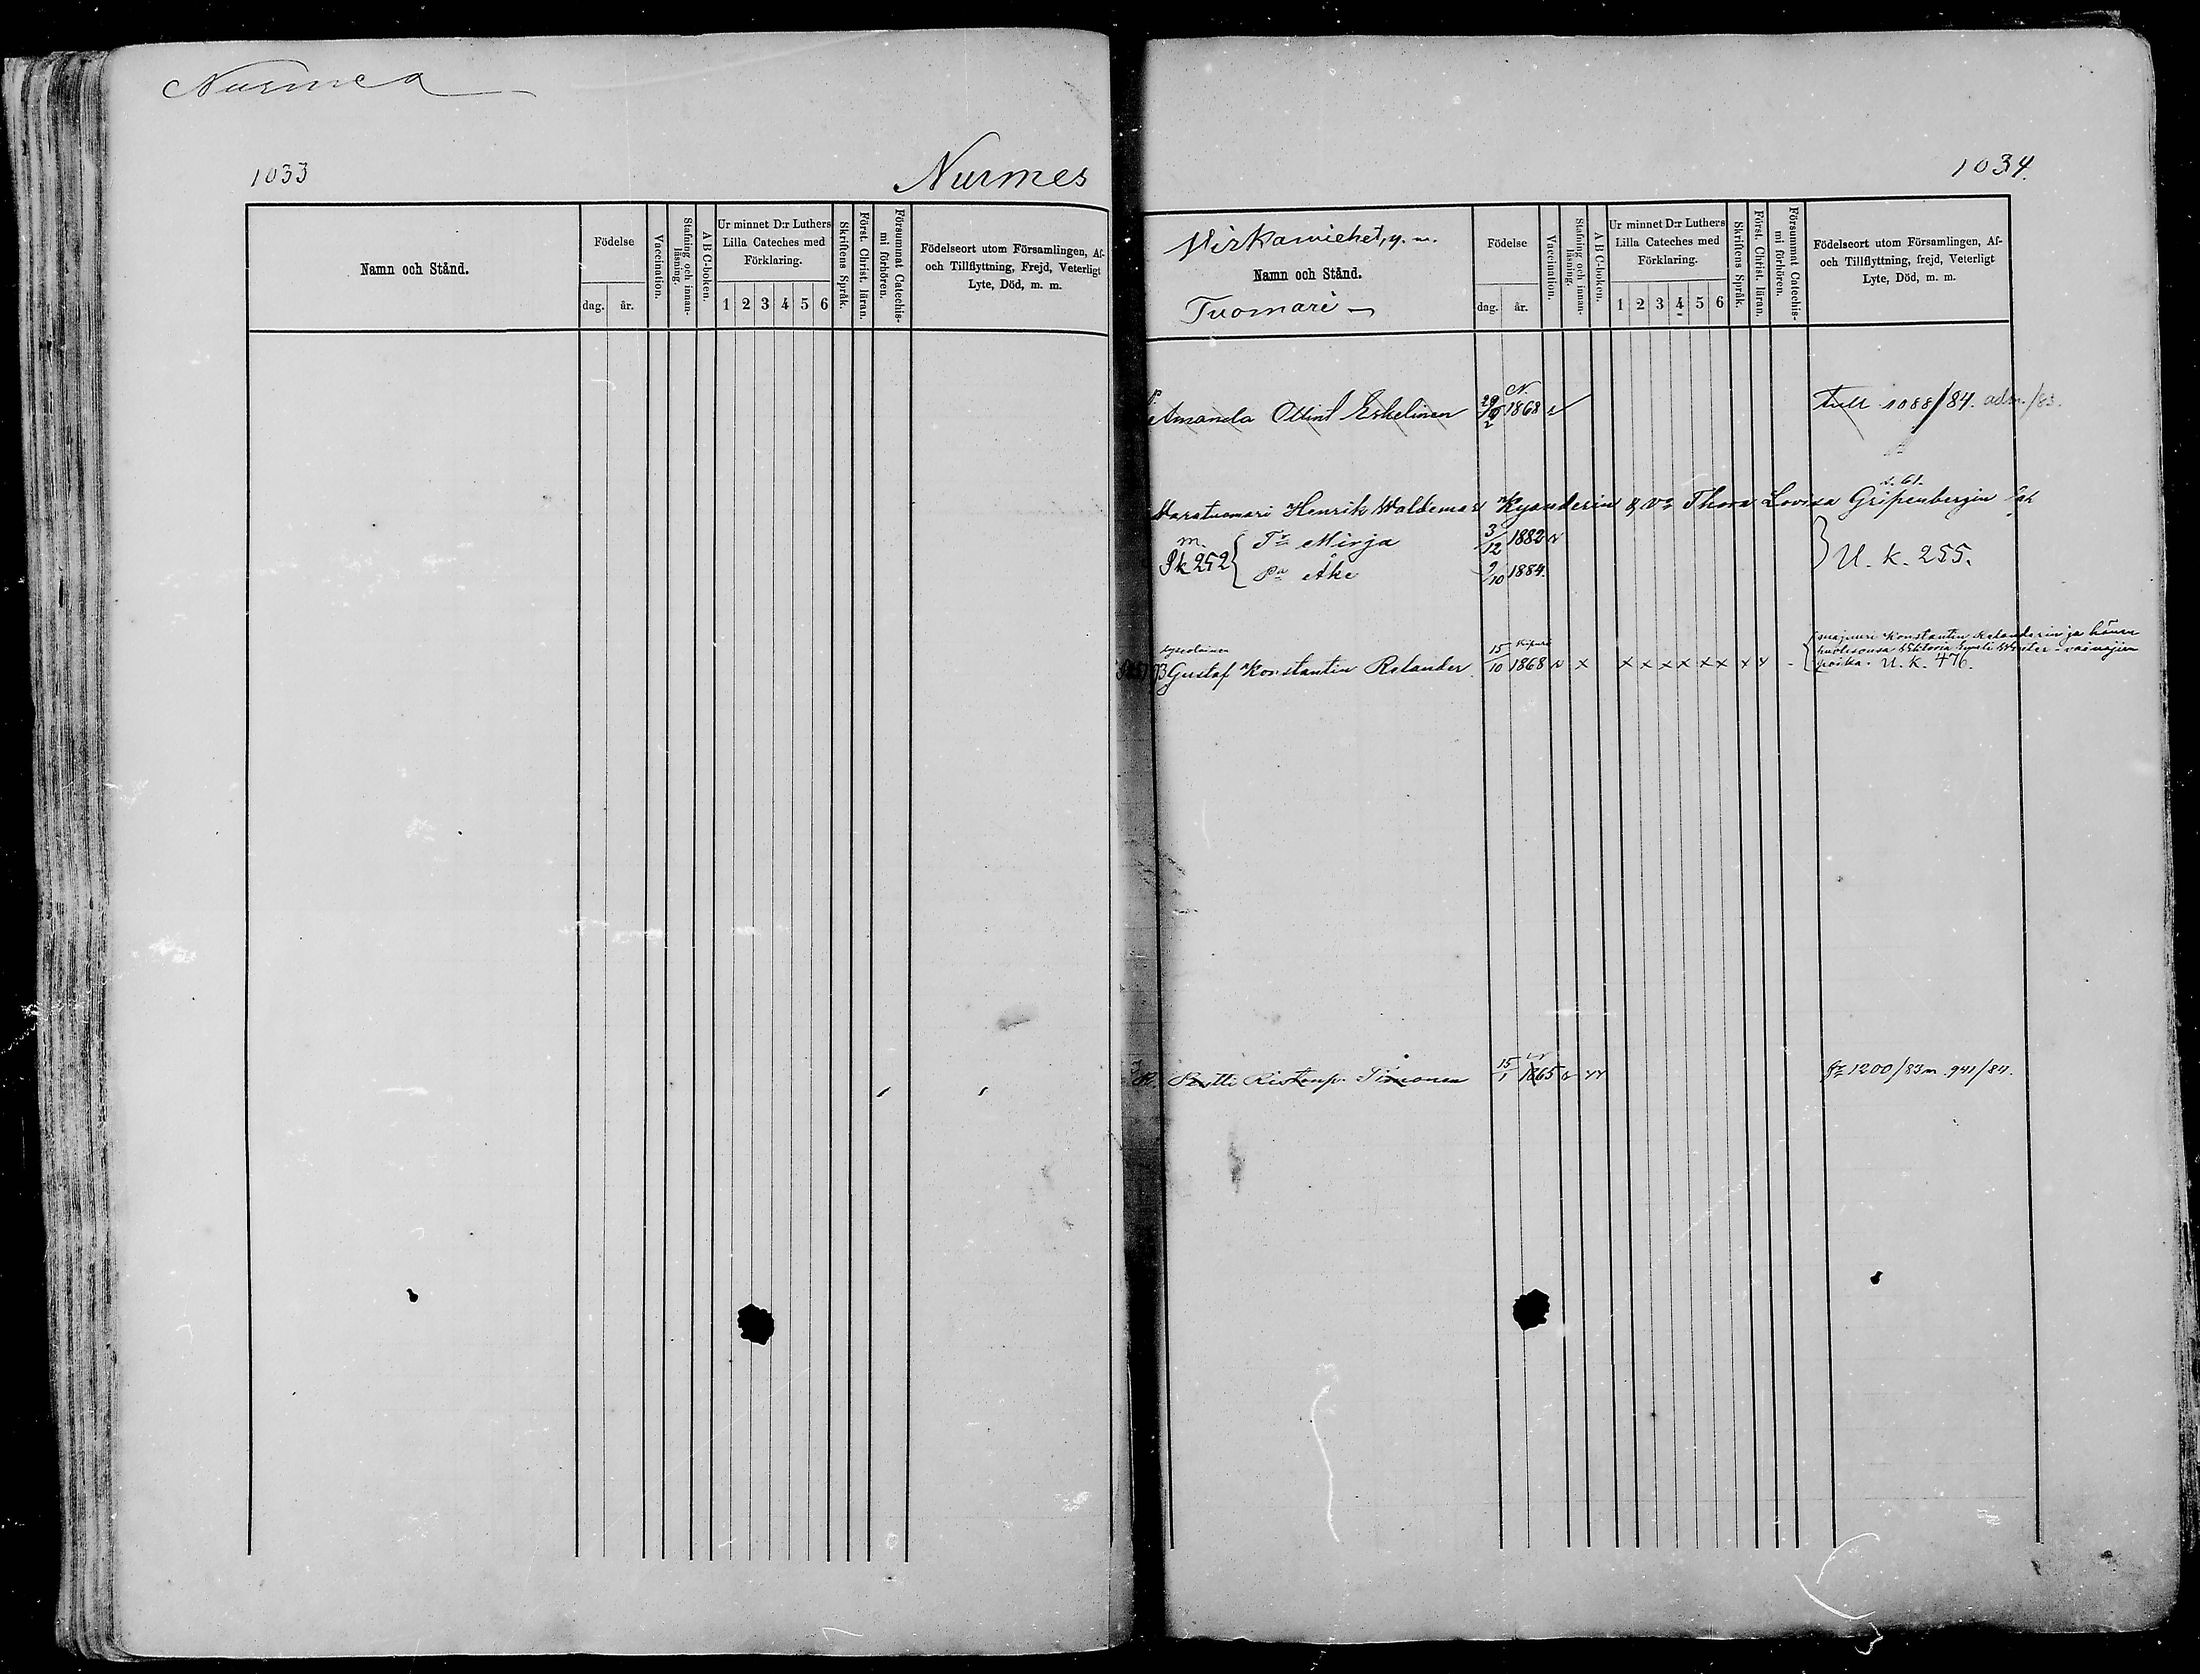 Nurmes
1033
Nurmes
Namn och Stånd.
Födelse
dag. år.
Vaccination.
Stafning och innanläsning.
A B C-boken.
Ur minnet D:r Luthers
Lilla Cateches med
Förklaring.
1 2 3 4 5 6
Skriftens Språk.
Först. Christ. läran.
Försummat Catechismi förhören.
Födelseort utom Församlingen, Af-
och Tillflyttning, Frejd, Veterligt
Lyte, Död, m. m.
1034.
Wirkamiehet, y. m.
Namn och Stånd.
Tuomari
Födelse
dag. år.
Vaccination.
Stafning och innanläsning.
A B C-boken.
Ur minnet D:r Luthers
Lilla Cateches med
Förklaring.
1 2 3 4 5 6
Skriftens Språk.
Först. Christ. läran.
Försummat Catechismi förhören.
Födelseort utom Församlingen, Af-
och Tillflyttning, frejd, Veterligt
Lyte, Död, m. m.
N.
Amanda Eskelinen 1868 v tull 1088/84. adm./83.
s. 61.
Varatuomari Henrik Waldemar Kyanderin & vo Thora Lovisa Gripenbergin
m. Pk 252 { Tr Mirja 3/12 1882 v
Pa Åke 9/10 1884. } U. k. 255.
Gustaf Konstantin Relander. 15/10 1868 v x x x x x x x x majuri Konstantin Relanderin ja hänen
puolisonsa vainajien
poika. U. k. 476.
Pertti Ristonp. Timonen 15/1 1865 1200/83 m. 941/84.